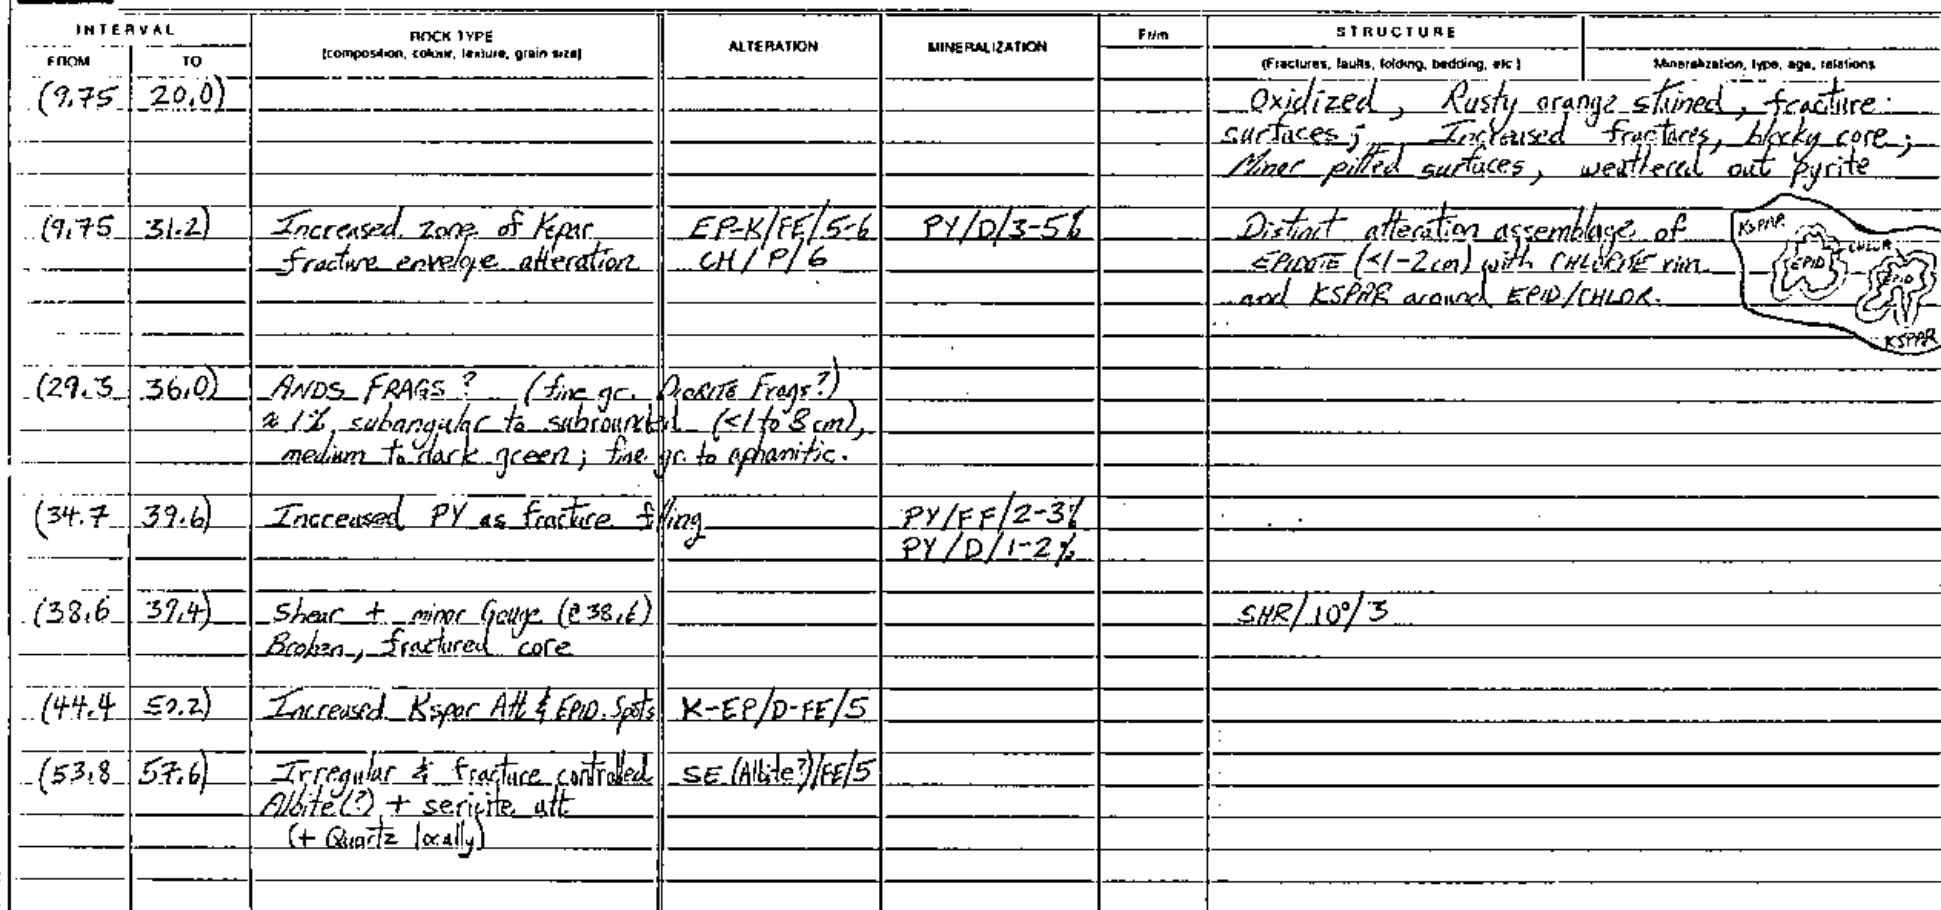 INTERVAL
FROM TO
ROCK TYPE
(composition, colour, texture, grain size)
ALTERATION
MINERALIZATION
Fr/m
STRUCTURE
(Fractures, faults, folding, bedding, etc)
Mineralization, type, age, relations
(9.75 20.0) Oxidized, Rusty orange stained, fracture
surfaces; Increased fractures, blocky core;
Minor pitted surfaces, weathered out pyrite
(9.75 31.2) Increased zone of Kspar EP-K/FE/5-6 PY/D/3-5% Distinct alteration assemblage of
fracture envelope alteration CH/P/6 EPIDOTE (<1-2cm) with CHLORITE rim
and KSPAR around EPID/CHLOR.
KSPAR
CHLOR
EPID
EPID
KSPAR
(29.3 36.0) ANDS FRAGS? (fine gr. DIORITE Frags?)
≈1%, subangular to subrounded (<1 to 8 cm),
medium to dark green; fine gr. to aphanitic.
(34.7 39.6) Increased PY as fracture filling PY/FF/2-3%
PY/D/1-2%
(38.6 39.4) Shear + minor Gouge (@38.6) SHR/10°/3
Broken, fractured core
(44.4 Increased Kspar Alt & EPID. Spots K-EP/D-FE/5
(53.8 57.6) Irregular & fracture controlled SE (Albite?)/FE/5
Albite(?) + sericite alt
(+ Quartz locally)